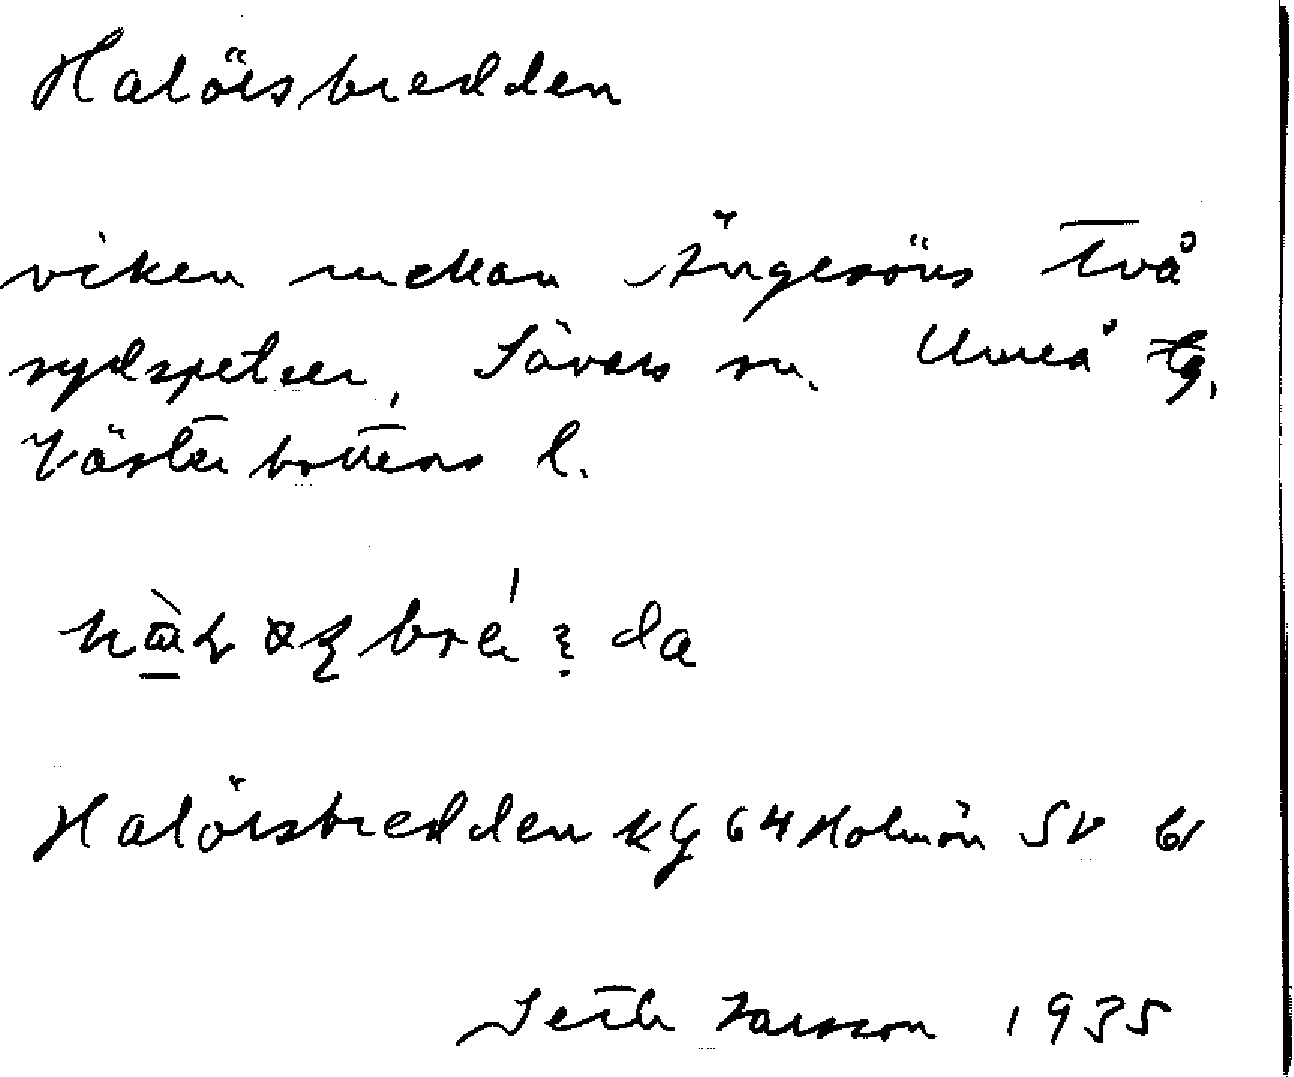 Halörsbredden
viken mellan Ängesöns två
sydspetsar, Sävars sn. Umeå tg,
Västerbottens l.
Halörsbredden KG 64 Holmön SV br
Seth Larsson 1935